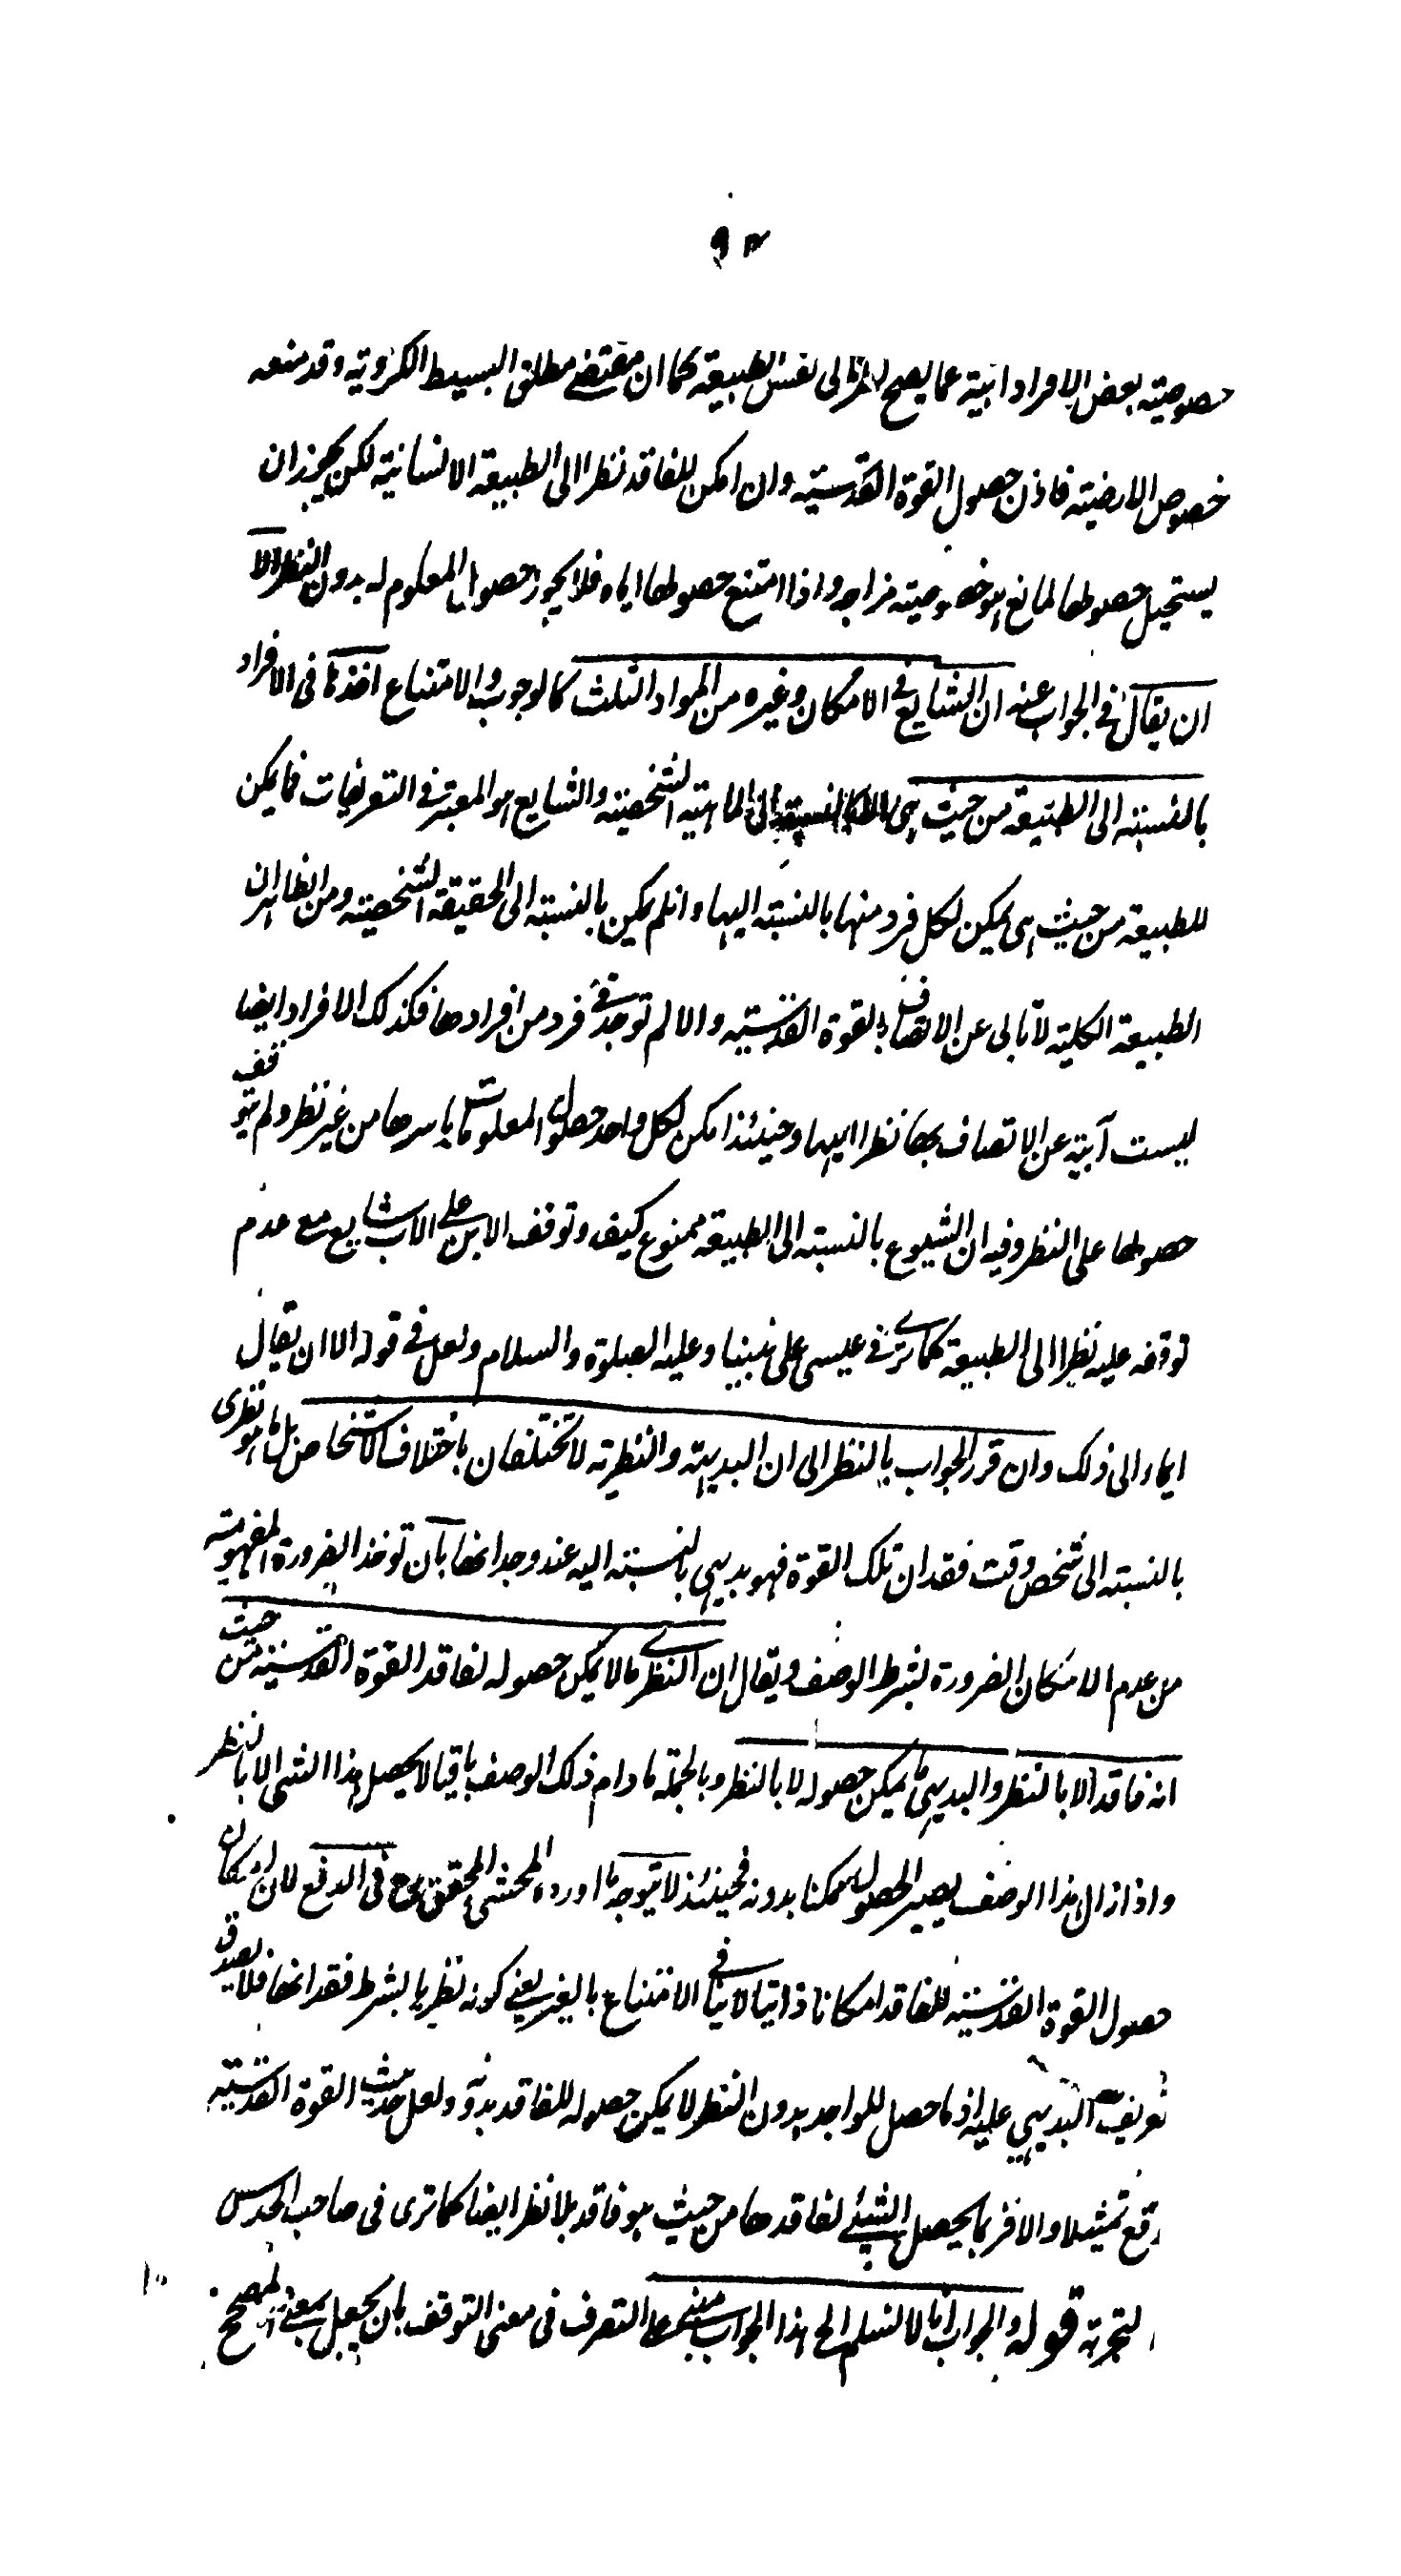 ٩٣
خصوصيته بعض الافراد ابية عما يصح نظرا الى نفس الطبيعة كما ان مقتضى مطلق البسيط الكروية وقد منعه
خصوص الارضيته فاذن حصول القوة القدسيته وان امكن للفاقد نظرا الى الطبيعة الانسانية لكن يجوز ان
يستحيل حصولها لمانع هو خصوصيته مزاجه واذا امتنع حصولها اياه فلا يجوز حصول المعلوم له بدون النظر الا
ان يقال في الجواب عنه ان الشايع في الامكان وغيره من المواد الثلث كالوجوب والامتناع اخذها في الافراد
بالنسبته الى الطبيعة من حيث هي الى الماهية الشخصيته والشايع هو المعتبر في التعريفات فما يمكن
للطبيعة من حيث هي يمكن لكل فرد منها بالنسبته اليها وانلم يمكن بالنسبته الى الحقيقة الشخصيته ومن الظاهر ان
الطبيعة الكلية لا تابى عن الاتصاف بالقوة القدسيته والا لم توجد في فرد من افرادها فكذلك الافراد ايضا
ليست آبية عن الاتصاف بها نظرا اليها وحينئذ امكن لكل واحد حصول المعلومات باسرها من غير نظر ولم يتوقف
حصولها على النظر وفيه ان الشيوع بالنسبته الى الطبيعة ممنوع كيف وتوقف الابن على الاب شايع مع عدم
توقفه عليه نظرا الى الطبيعة كما ترى في عيسى على نبينا وعليه الصلوة والسلام ولعل في قوله الا ان يقال
ايماء الى ذلك وان قرر الجواب بالنظر الى ان البديهية والنظرية لا تختلفان باختلاف الاشخاص بل ما هو نظرى
بالنسبته الى شخص وقت فقدان تلك القوة فهو بديهي بالنسبته اليه عند وجدانها بان توخذ الضرورة المفهومة
من عدم الامكان الضرورة بشرط الوصف ويقال ان النظرى ما لا يمكن حصوله لفاقد القوة القدسية من حيث
انه فاقد الا بالنظر والبديهي ما يمكن حصوله لا بالنظر وبالجملة ما دام ذلك الوصف باقيا لا يحصل هذا الشي الا بالنظر
واذا زال هذا الوصف يصير الحصول ممكنا بدونه فحينئذ لا يتوجه ما اورده المحشي المحقق رح في الدفع لان امكان
حصول القوة القدسيته للفاقد امكانا ذاتيا لا ينافي الامتناع بالغير يعني كونه نظريا بشرط فقدانها فلا يصدق
تعريف البديهي عليه اذ ما حصل للواجد بدون النظر لا يمكن حصوله للفاقد بدونه ولعل حديث القوة القدسيته
وقع تمثيلا والا فربما يحصل الشيئ لفاقدها من حيث هو فاقد بلا نظر ايضا كما ترى في صاحب الحدس
والتجربة قوله والجواب انا لا نسلم الخ هذا الجواب التصرف في معنى التوقف بان يجعل بمعنى المصحح